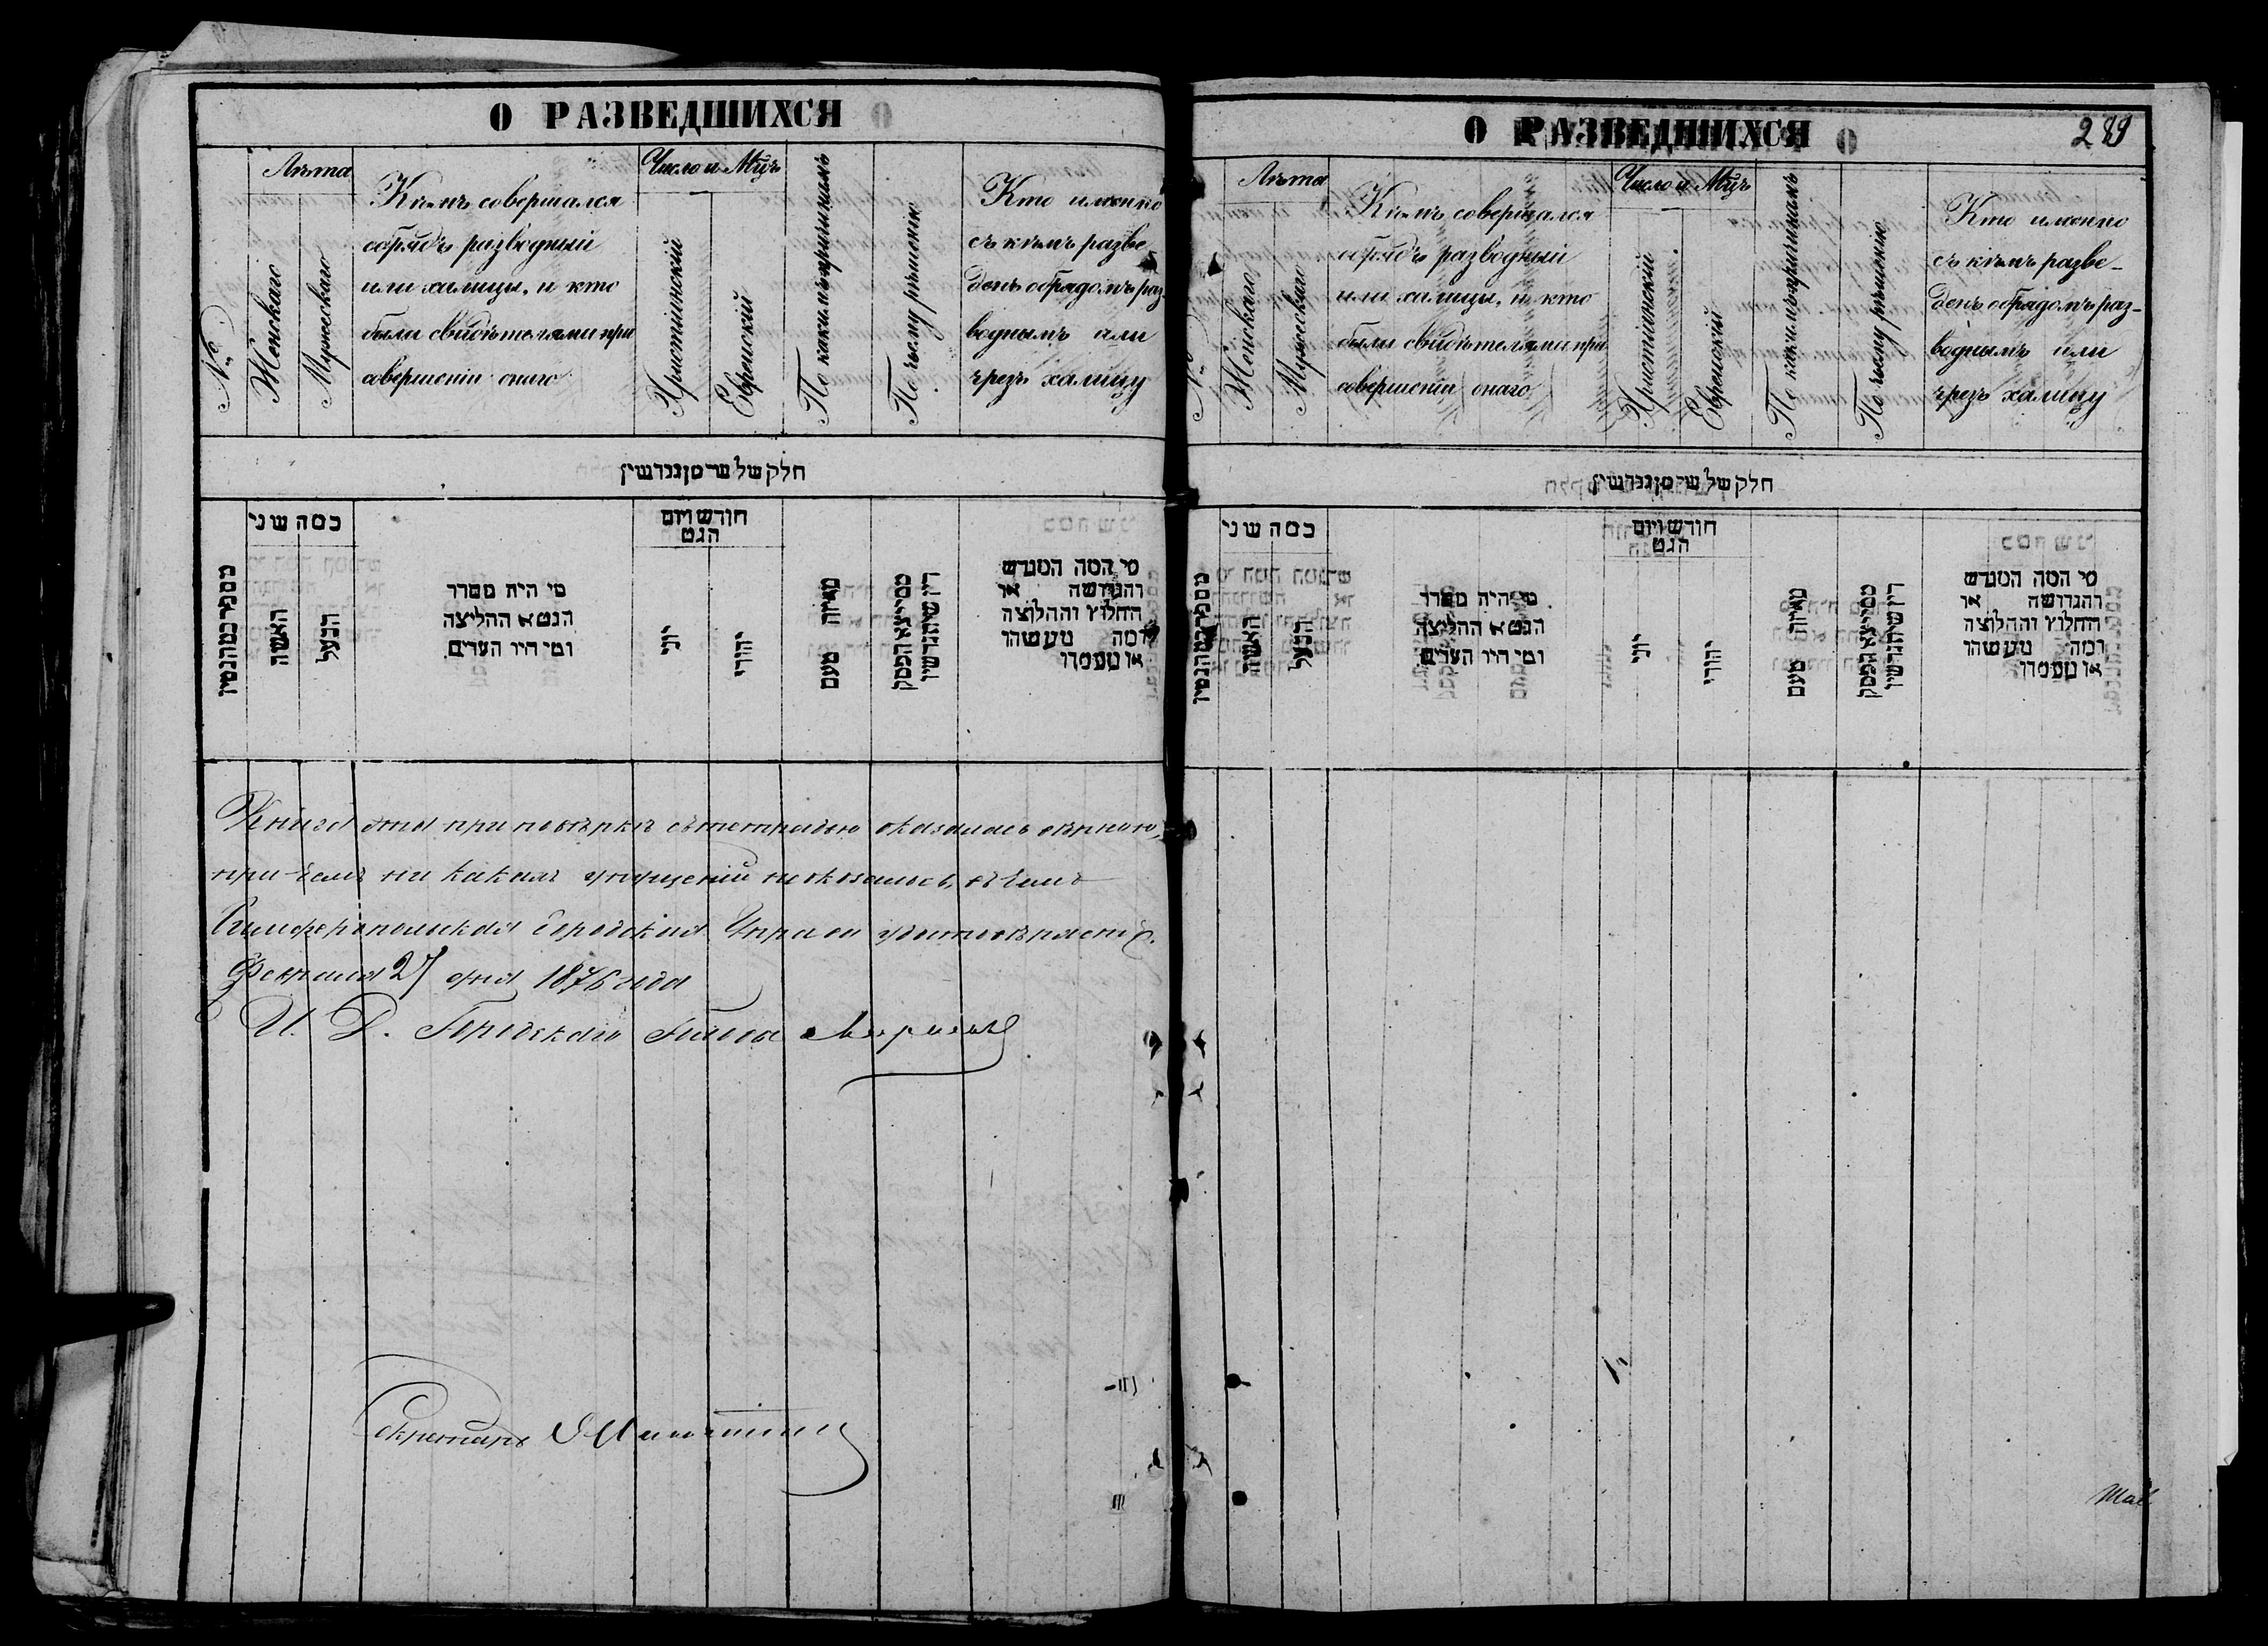 О РАЗВЕДШИХСЯ
№
Лѣта
Женскаго
Мужескаго
Кѣмъ совершался
обрядъ разводный
или халицы, и кто
были свидѣтелями при
совершеніи онаго
Число и Мцъ
Христіянскій
Еврейскій
По какимъ причинамъ
По чьему рѣшенію
Кто именно
съ кѣмъ разве
денъ обрядомъ раз-
воднымъ или
чрезъ халицу
חלק של שר מן גנרשין
כמה שני
האשה
הבעל
מי היה מסדר
הגט א ההליצה
ומי היו העדים
חורש ויום
הגט
יוני
יהודי
מאיזה טעם
מי המה המגרש
והגרושה או
החלוץ וההלוצה
ומה טעשהו
או מעמדו
Книга эта при повѣркѣ съ тетрадью оказалась вѣрною,
при чемъ ни какихъ упущеній не оказалось, въ чемъ
Симферопольская Городская Управа удостовѣряетъ.
Февраля 27 дня 1876 года
И. Д. Городскаго Головы
Секретарь
О РАЗВЕДШИХСЯ
289
№
Лѣта
Женскаго
Мужескаго
Кѣмъ совершался
обрядъ разводный
или халицы, и кто
были свидѣтелями при
совершеніи онаго
Число и Мцъ
Христіянскій
Еврейскій
По какимъ причинамъ
По чьему рѣшенію
Кто именно
съ кѣмъ разве-
денъ обрядомъ раз-
воднымъ или
чрезъ халицу
חלק של שר מן גנרשין
כמה שני
האשה
הבעל
מי היה מסדר
הגט א ההליצה
ומי היו העדים
חורש ויום
הגט
יוני
יהודי
מאיזה טעם
מי המה המגרש
והגרושה או
החלוץ וההלוצה
ומה טעשהו
או מעמדו